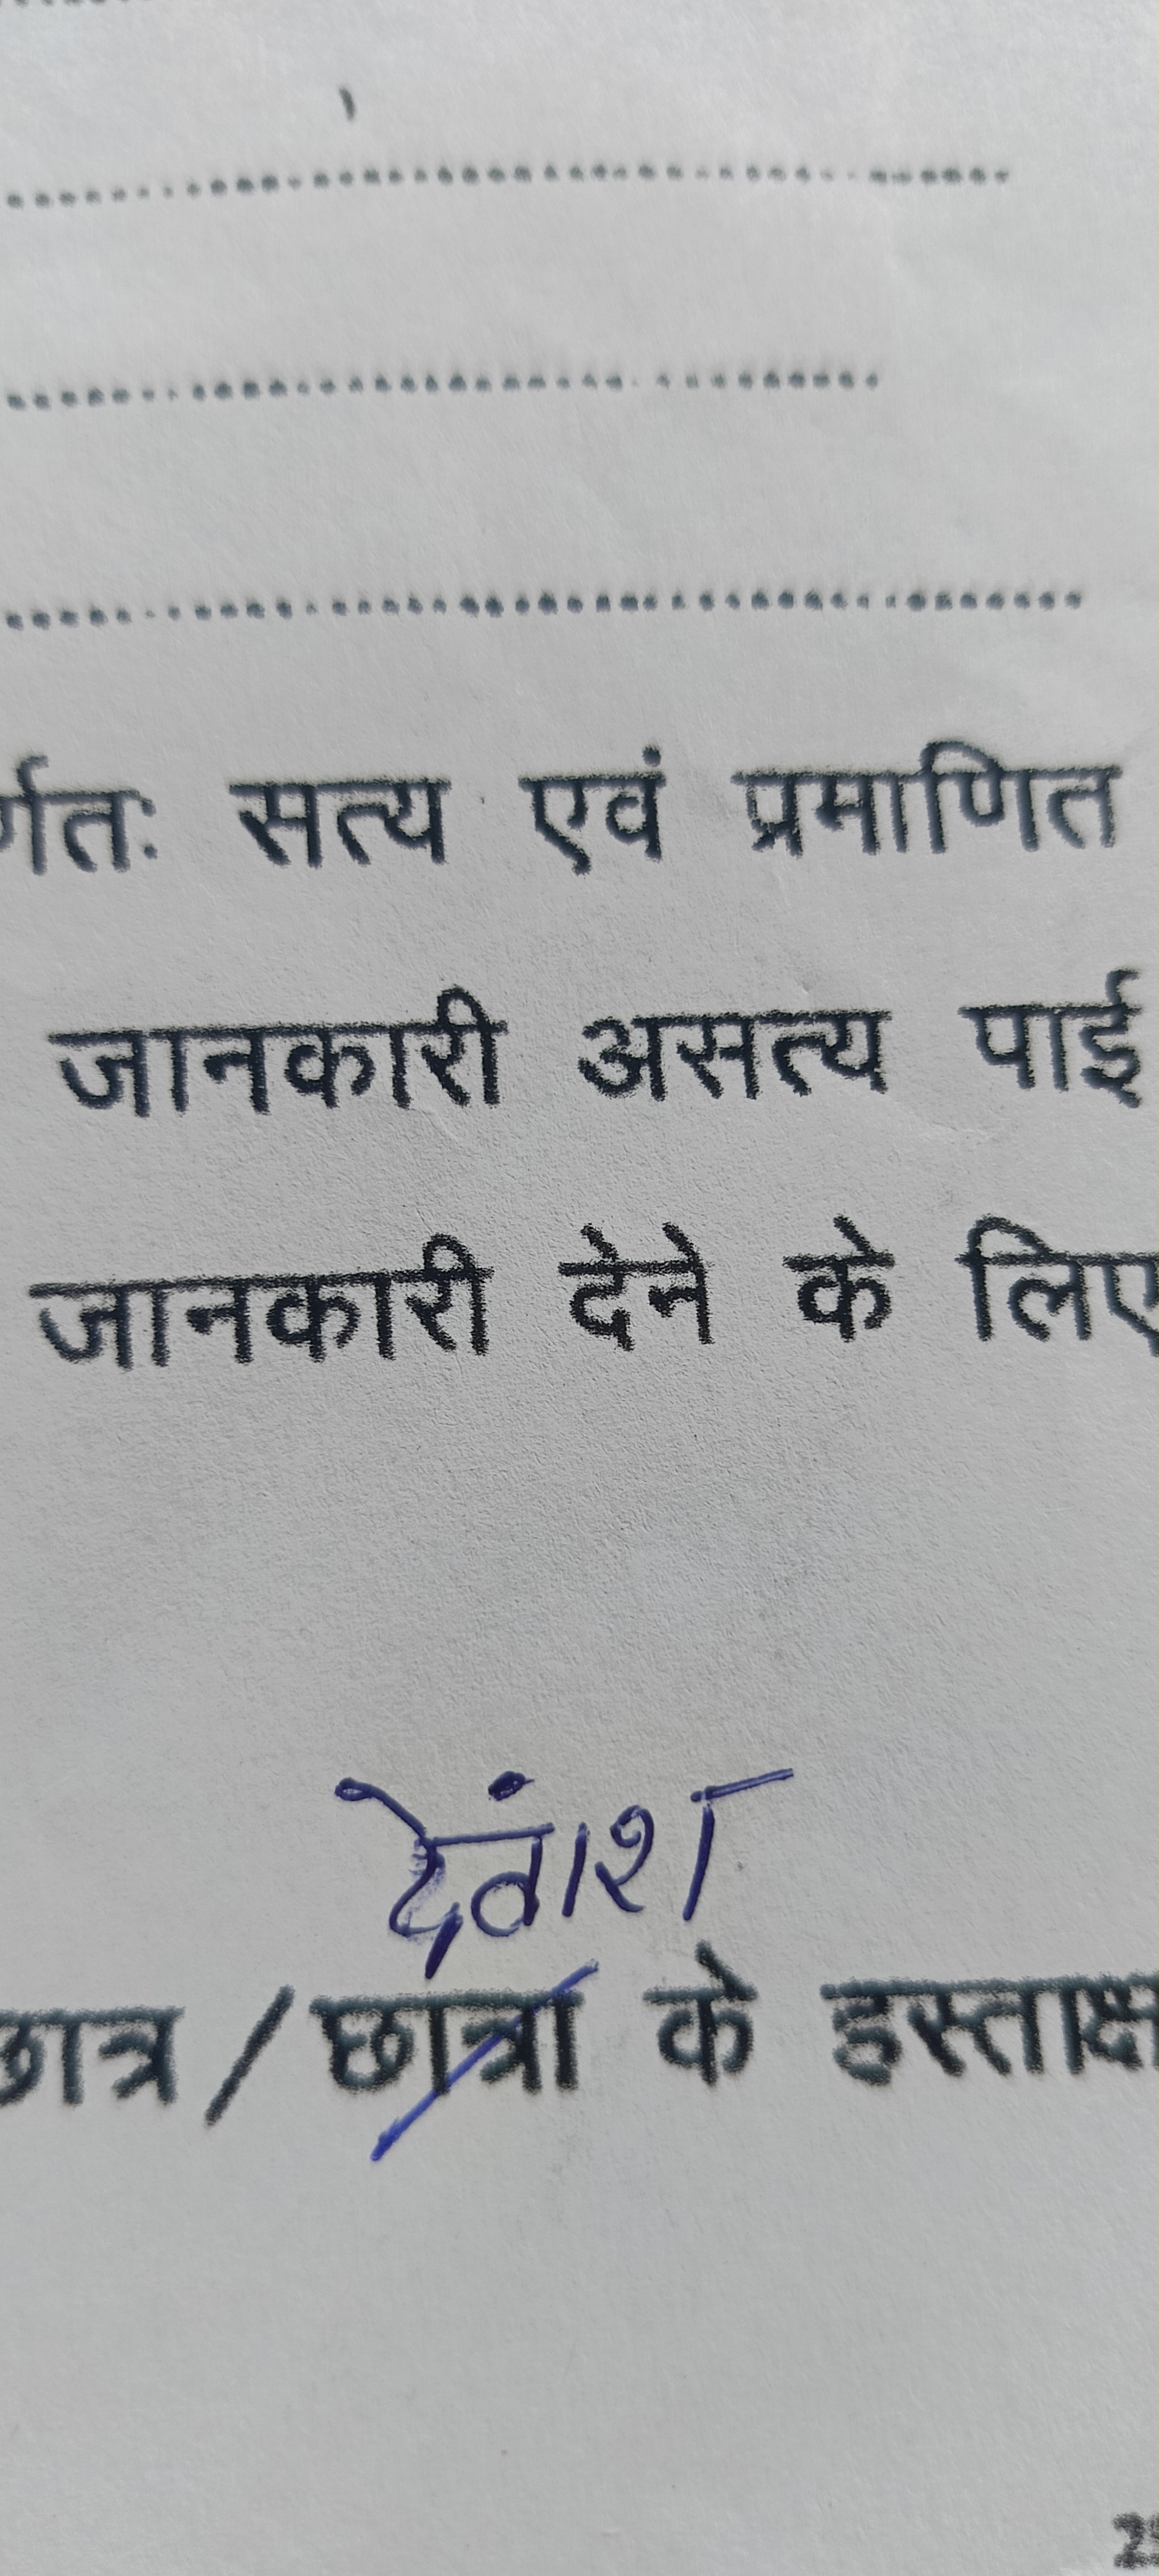 र्णतः सत्य एवं प्रमाणित
जानकारी असत्य पाई
जानकारी देने के लिए
देवांश
छात्र / छात्रा के हस्ताक्ष